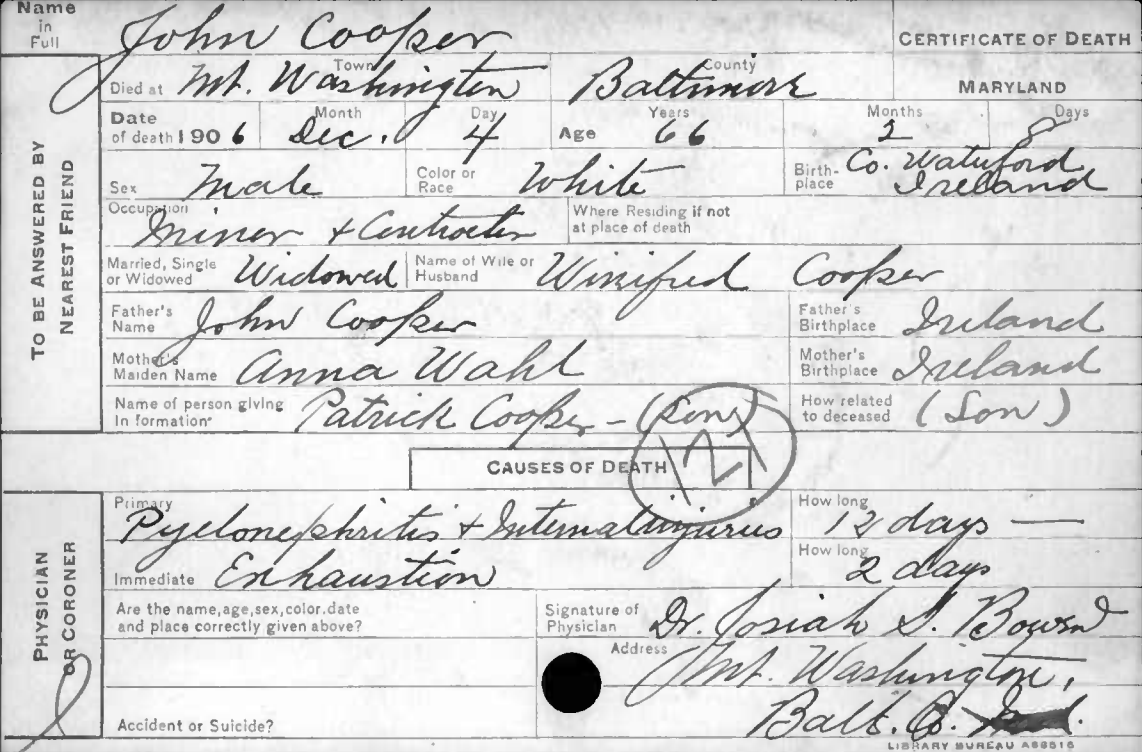 Name in Full John Cooper
CERTIFICATE OF DEATH
Died at Town Mt. Washington County Baltimore MARYLAND
Date of death 1906 Month Dec. Day 4 Age Years 66 Months 2 Days 8
Sex Male Color or Race White Birth-place Co. Waterford Ireland
Occupation Miner + Contractor Where Residing if not at place of death
Married, Single or Widowed Widowed Name of Wife or Husband Winifred Cooper
Father's Name John Cooper Father's Birthplace Ireland
Mother's Maiden Name Anna Wahl Mother's Birthplace Ireland
Name of person giving In formation Patrick Cooper - (Son) How related to deceased (Son)
TO BE ANSWERED BY NEAREST FRIEND
CAUSES OF DEATH
Primary Pyelonephritis + Internal injuries How long 12 days
Immediate Exhaustion How long 2 days
Are the name, age, sex, color, date and place correctly given above?
Signature of Physician Dr. Josiah S. Bowen
Address Mt. Washington,
Balt. Co. Md.
Accident or Suicide?
PHYSICIAN OR CORONER
LIBRARY BUREAU